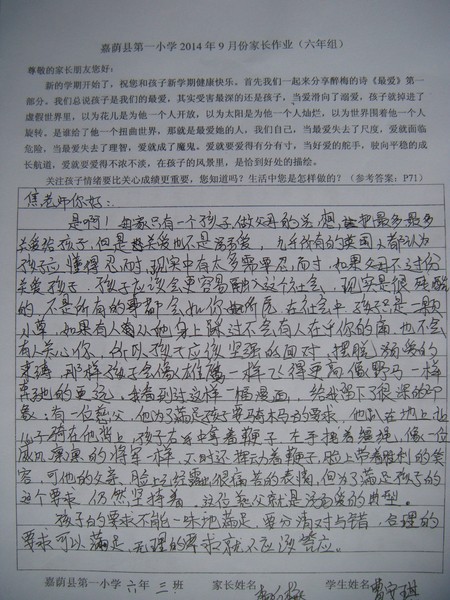 嘉荫县第一小学2014年9月份家长作业（六年组）
尊敬的家长朋友您好：
新的学期开始了，祝您和孩子新学期健康快乐。首先我们一起来分享醉梅的诗《最爱》第一
部分。我们总说孩子是我们的最爱，其实受害最深的还是孩子，当爱滑向了溺爱，孩子就掉进了
虚假世界里，以为花儿是为他一个人开放，以为太阳是为他一个人灿烂，以为世界围着他一个人
旋转。是谁给了他一个扭曲世界，那就是最爱她的人，我们自己，当最爱失去了尺度，爱就面临
危险，当最爱失去了理智，爱就成了魔鬼。爱就要爱得有分有寸，当好爱的舵手，驶向平稳的成
长航道，爱就要爱得不浓不淡，在孩子的风景里，是恰到好处的描绘。
关注孩子情绪要比关心成绩更重要，您知道吗？生活中您是怎样做的？（参考答案：P71）
焦老师你好：
是啊！每家只有一个孩子，做父母的总想把最多最多
关爱给孩子，但是关爱也不是溺爱，几乎所有的英国人都认为
孩子应懂得忍耐，现实中有太多需要忍耐，如果父母不过份
关爱孩子，孩子应该会更容易融入这个社会，现实是很残酷
的，不是所有的事都会如你所愿，在社会中孩子只是一颗
小草，如果有人从他身上踩过不会有人在乎你的痛，也不会
有人关心你，所以孩子应该坚强的面对，摆脱溺爱的
束缚，那样孩子会像雄鹰一样飞得更高像野马一样
奔驰的更远，我看到过这样一幅漫画，给我留下了很深的印
象：有一位慈父，他为了满足孩子要骑木马的要求，他趴在地上让
儿子骑在他背上，孩子右手拿着鞭子，左手拽着缰绳，像一位
威风凛凛的将军一样，不时还挥动着鞭子，脸上带着胜利的笑
容，可他的父亲，脸上已经露出很痛苦的表情，但为了满足孩子的
这个要求，仍然坚持着，这位慈父就是溺爱的典型。
孩子的要求不能一味地满足，要分清对与错，合理的
要求可以满足，无理的要求就不应该答应。
嘉荫县第一小学 六年 三 班 家长姓名 学生姓名